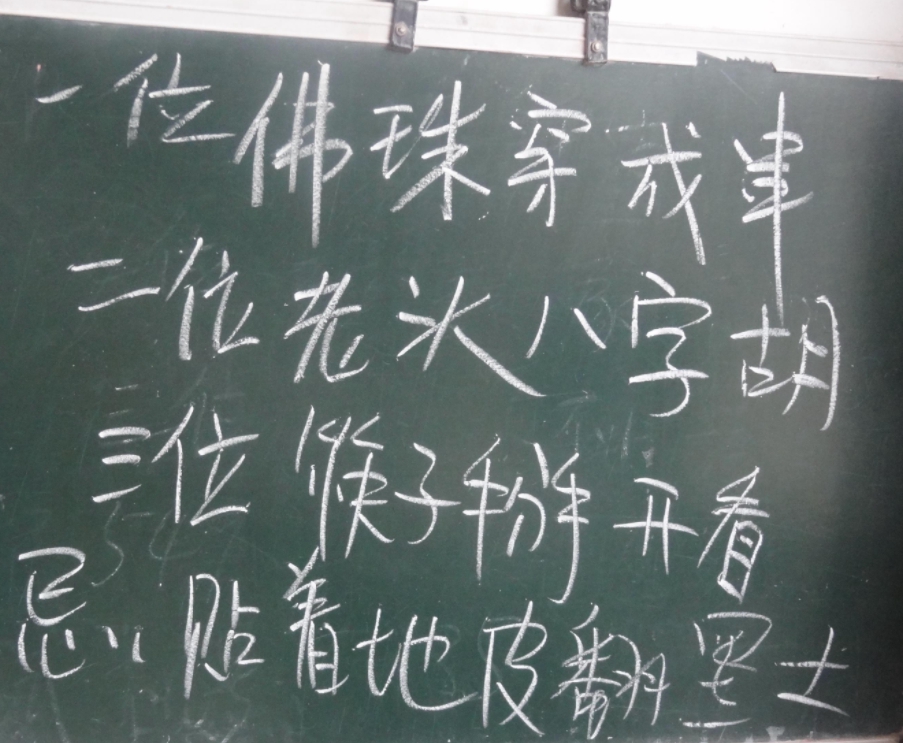 一位佛珠穿成串
二位老头八字胡
三位筷子掰开看
忌:贴着地皮翻墨土